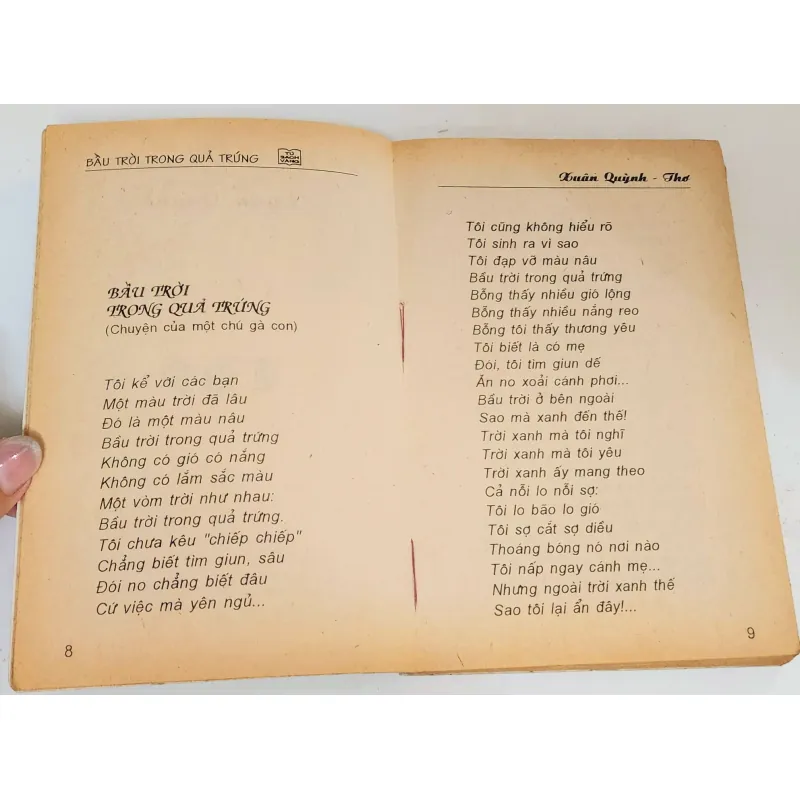 BẦU TRỜI TRONG QUẢ TRỨNG
TỦ
SÁCH
VÀNG
BẦU TRỜI
TRONG QUẢ TRỨNG
(Chuyện của một chú gà con)
Tôi kể với các bạn
Một màu trời đã lâu
Đó là một màu nâu
Bầu trời trong quả trứng
Không có gió có nắng
Không có lắm sắc màu
Một vòm trời như nhau:
Bầu trời trong quả trứng.
Tôi chưa kêu "chiếp chiếp"
Chẳng biết tìm giun, sâu
Đói no chẳng biết đâu
Cứ việc mà yên ngủ...
8
Xuân Quỳnh - Thơ
Tôi cũng không hiểu rõ
Tôi sinh ra vì sao
Tôi đạp vỡ màu nâu
Bầu trời trong quả trứng
Bỗng thấy nhiều gió lộng
Bỗng thấy nhiều nắng reo
Bỗng tôi thấy thương yêu
Tôi biết là có mẹ
Đói, tôi tìm giun dế
Ăn no xoải cánh phơi...
Bầu trời ở bên ngoài
Sao mà xanh đến thế!
Trời xanh mà tôi nghĩ
Trời xanh mà tôi yêu
Trời xanh ấy mang theo
Cả nỗi lo nỗi sợ:
Tôi lo bão lo gió
Tôi sợ cắt sợ diều
Thoáng bóng nó nơi nào
Tôi nấp ngay cánh mẹ...
Nhưng ngoài trời xanh thế
Sao tôi lại ẩn đây!...
9